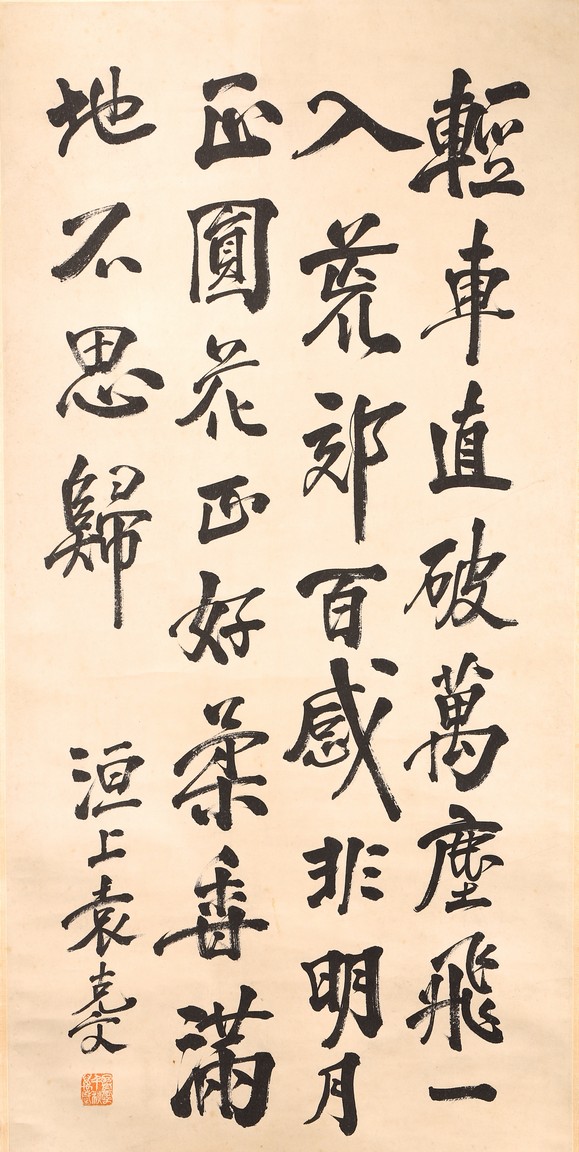 輕車直破萬塵飛一
入荒郊百感非明月
正圓花正好柔香滿
地不思歸
洹上袁克文